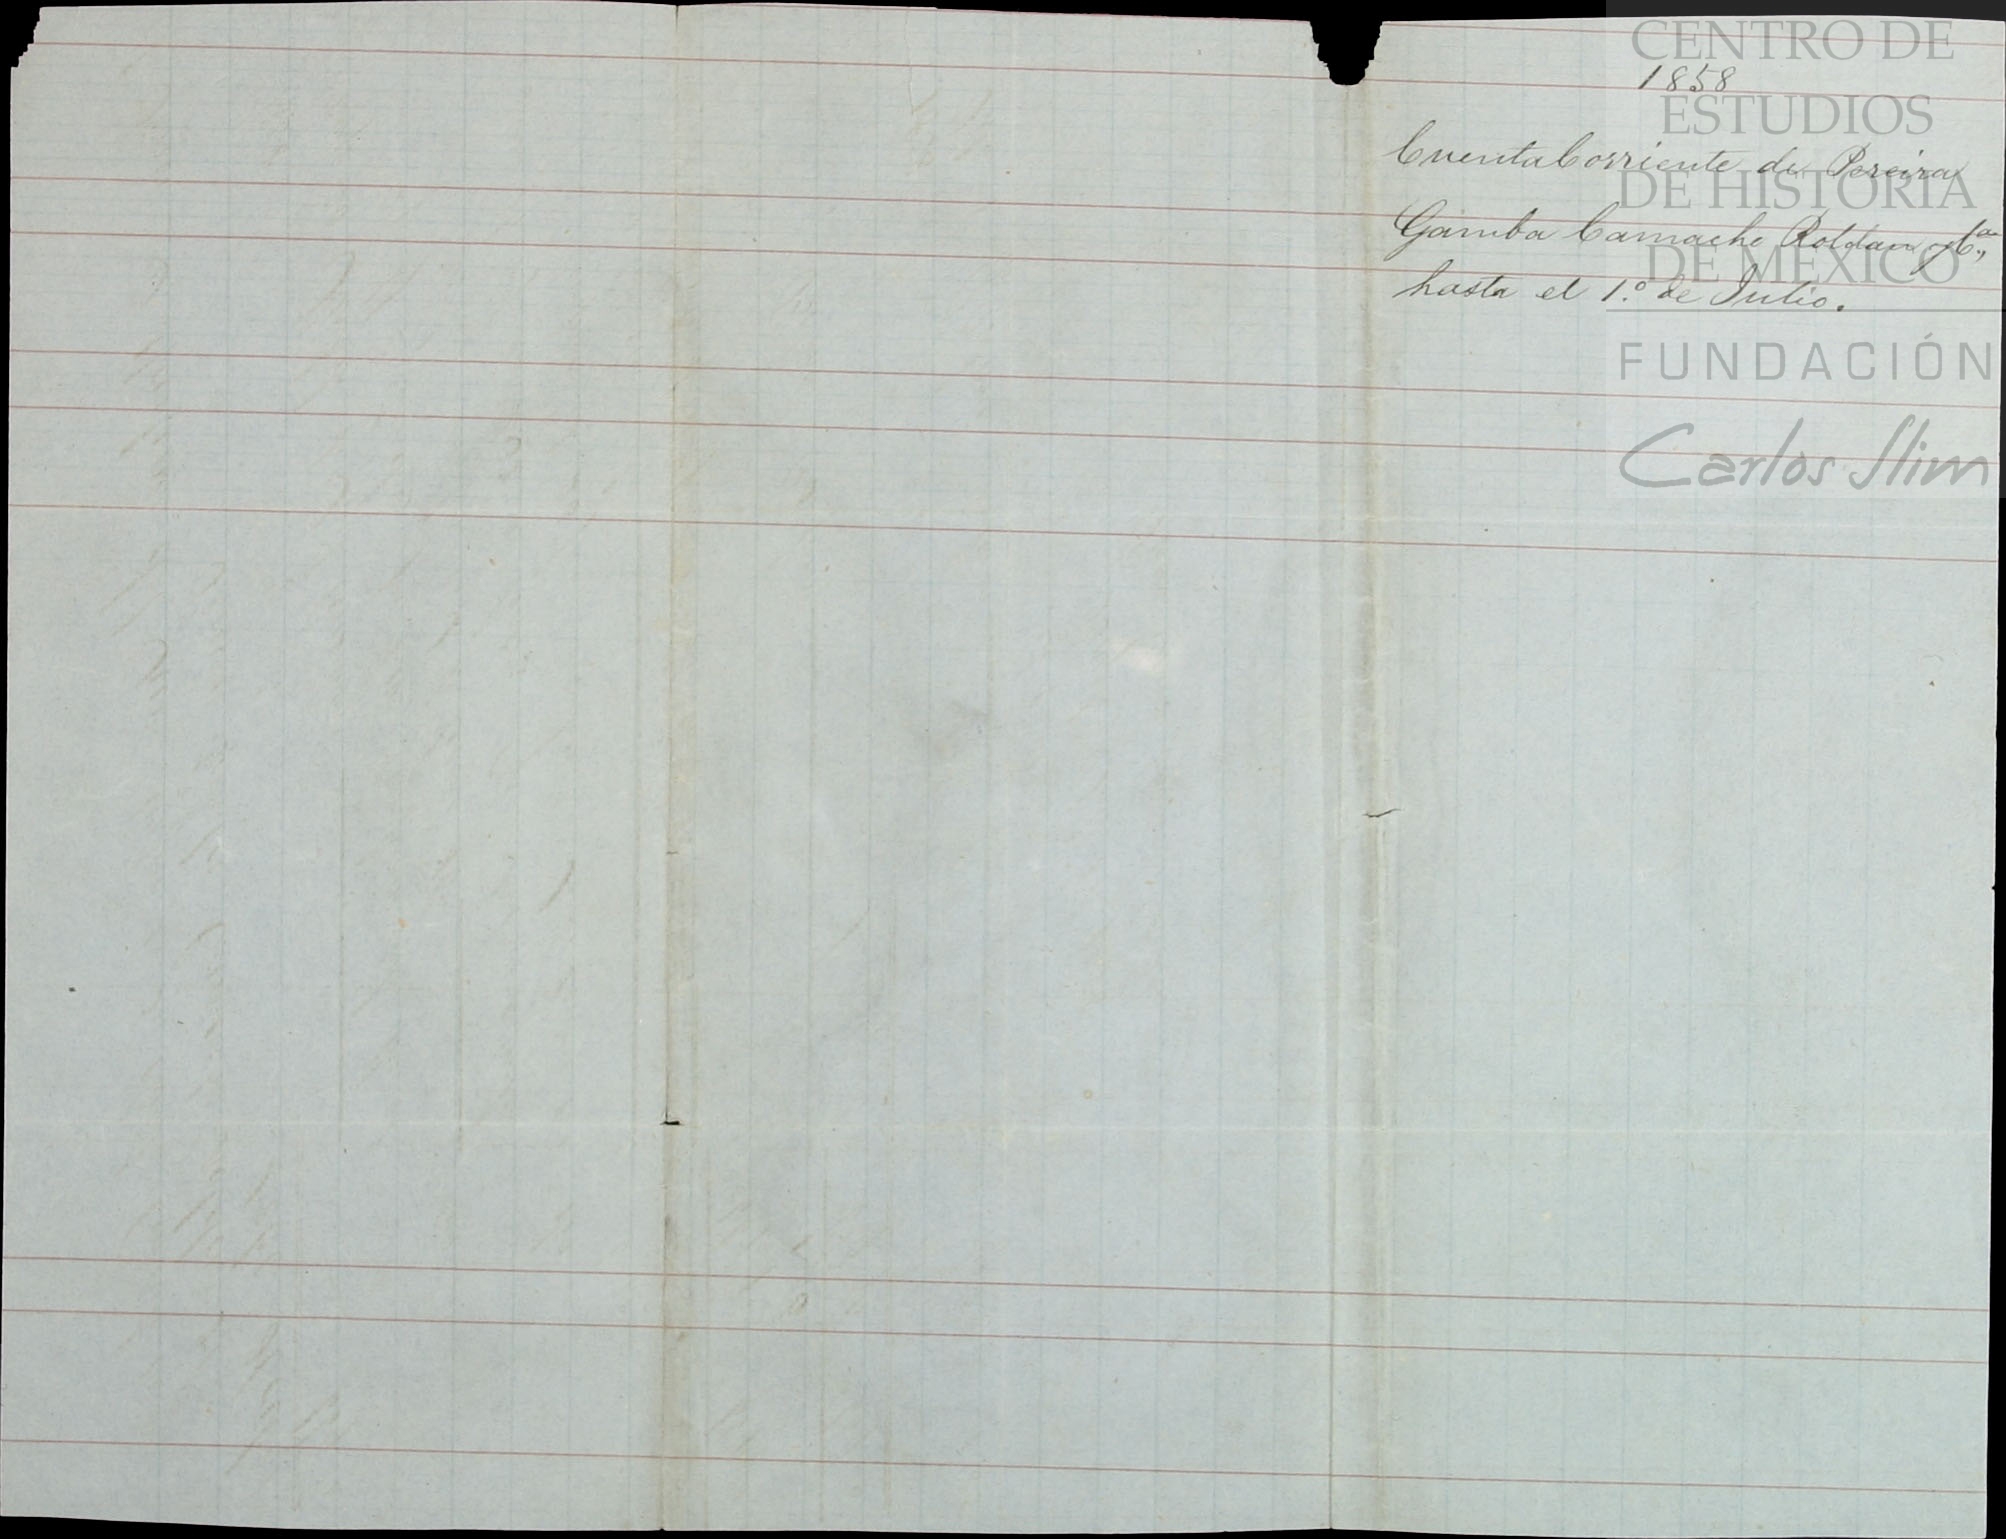 CENTRO DE
ESTUDIOS
DE HISTORIA
DE MÉXICO
FUNDACIÓN
Carlos Slim
1858
Cuenta Corriente de Pereira
Gamba Camacho Roldan y Cª,
hasta el 1.º de Julio.